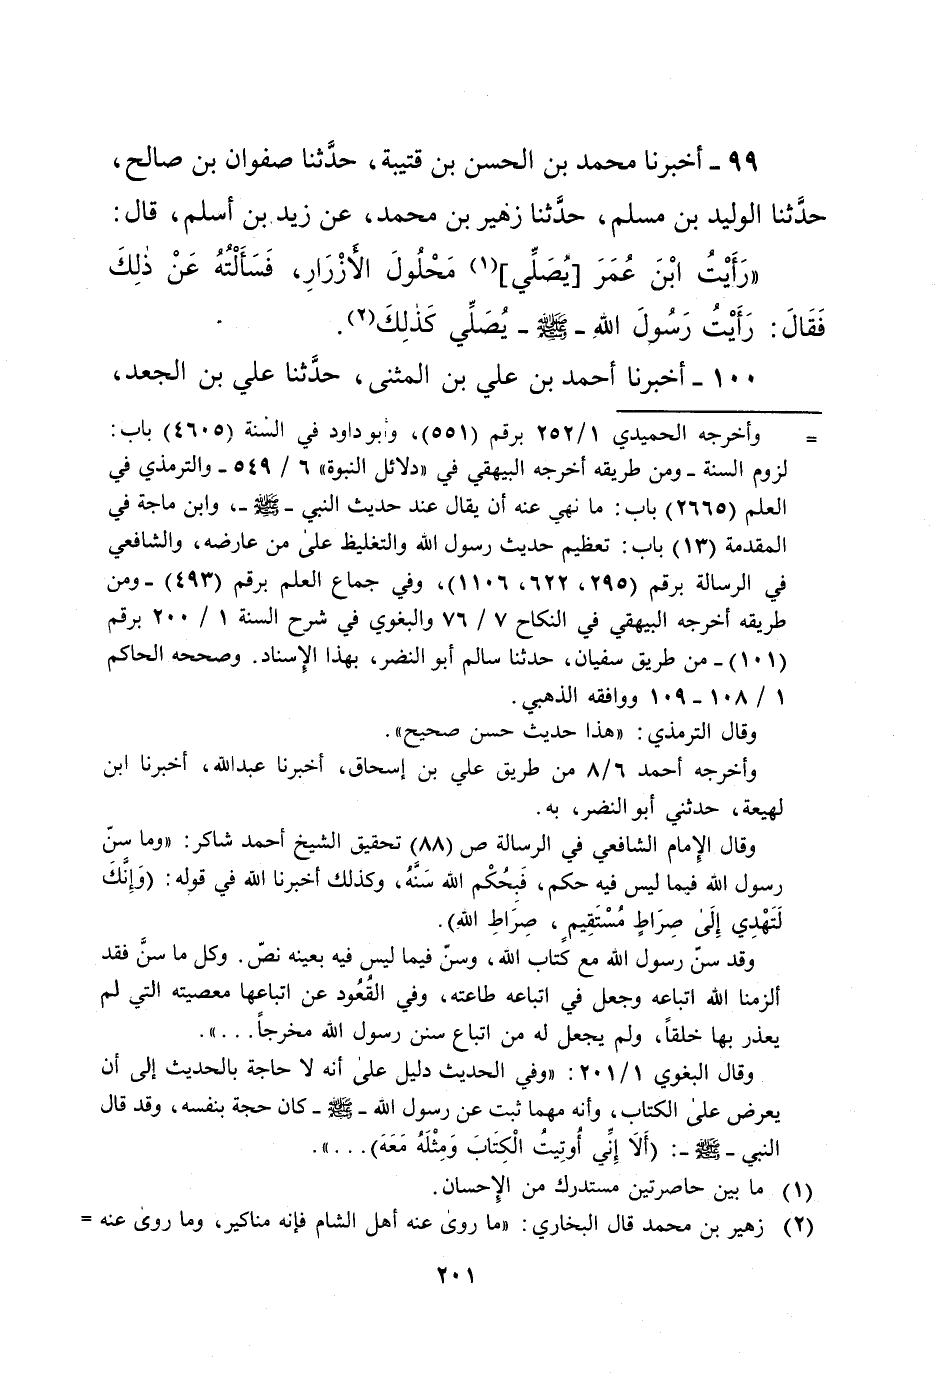 ٩٩ ـ أخبرنا محمد بن الحسن بن قتيبة، حدَّثنا صفوان بن صالح،
حدَّثنا الوليد بن مسلم، حدَّثنا زهير بن محمد، عن زيد بن أسلم، قال:
«رَأَيْتُ ابْنَ عُمَرَ [يُصَلِّي](١) مَحْلُولَ الأَزْرَارِ، فَسَأَلْتُهُ عَنْ ذٰلِكَ
فَقَالَ: رَأَيْتُ رَسُولَ اللهِ ـ ﷺ ـ يُصَلِّي كَذٰلِكَ(٢).
١٠٠ ـ أخبرنا أحمد بن علي بن المثنى، حدَّثنا علي بن الجعد،
= وأخرجه الحميدي ٢٥٢/١ برقم (٥٥١)، وأبو داود في السُنة (٤٦٠٥) باب:
لزوم السنة ـ ومن طريقه أخرجه البيهقي في «دلائل النبوة» ٦ / ٥٤٩ ـ والترمذي في
العلم (٢٦٦٥) باب: ما نهي عنه أن يقال عند حديث النبي ـ ﷺ ـ، وابن ماجة في
المقدمة (١٣) باب: تعظيم حديث رسول الله والتغليظ علىٰ من عارضه، والشافعي
في الرسالة برقم (٢٩٥، ٦٢٢، ١١٠٦)، وفي جماع العلم برقم (٤٩٣) ـ ومن
طريقه أخرجه البيهقي في النكاح ٧ / ٧٦ والبغوي في شرح السنة ١ / ٢٠٠ برقم
(١٠١) ـ من طريق سفيان، حدثنا سالم أبو النضر، بهذا الإسناد. وصححه الحاكم
١ / ١٠٨ ـ ١٠٩ ووافقه الذهبي.
وقال الترمذي: «هذا حديث حسن صحيح».
وأخرجه أحمد ٨/٦ من طريق علي بن إسحاق، أخبرنا عبدالله، أخبرنا ابن
لهيعة، حدثني أبو النضر، به.
وقال الإمام الشافعي في الرسالة ص (٨٨) تحقيق الشيخ أحمد شاكر: «وما سنّ
رسول الله فيما ليس فيه حكم، فَبِحُكْم الله سَنَّهُ، وكذلك أخبرنا الله في قوله: (وَإِنَّكَ
لَتَهْدِي إِلَىٰ صِرَاطٍ مُسْتَقِيمٍ، صِرَاطِ اللهِ).
وقد سنّ رسول الله مع كتاب الله، وسنّ فيما ليس فيه بعينه نصّ. وكل ما سنَّ فقد
ألزمنا الله اتباعه وجعل في اتباعه طاعته، وفي القُعُود عن اتباعها معصيته التي لم
يعذر بها خلقاً، ولم يجعل له من اتباع سنن رسول الله مخرجاً...».
وقال البغوي ٢٠١/١: «وفي الحديث دليل علىٰ أنه لا حاجة بالحديث إلى أن
يعرض علىٰ الكتاب، وأنه مهما ثبت عن رسول الله ـ ﷺ ـ كان حجة بنفسه، وقد قال
النبي ـ ﷺ ـ: (أَلَا إِنِّي أُوتِيتُ الْكِتَابَ وَمِثْلَهُ مَعَهُ)...».
(١) ما بين حاصرتين مستدرك من الإحسان.
(٢) زهير بن محمد قال البخاري: «ما روىٰ عنه أهل الشام فإنه مناكير، وما روىٰ عنه =
٢٠١